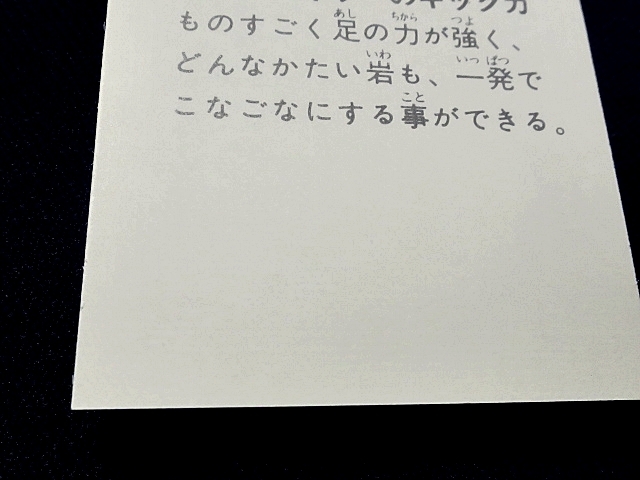 のキック力
ものすごく足の力が強く、
どんなかたい岩も、一発で
こなごなにする事ができる。